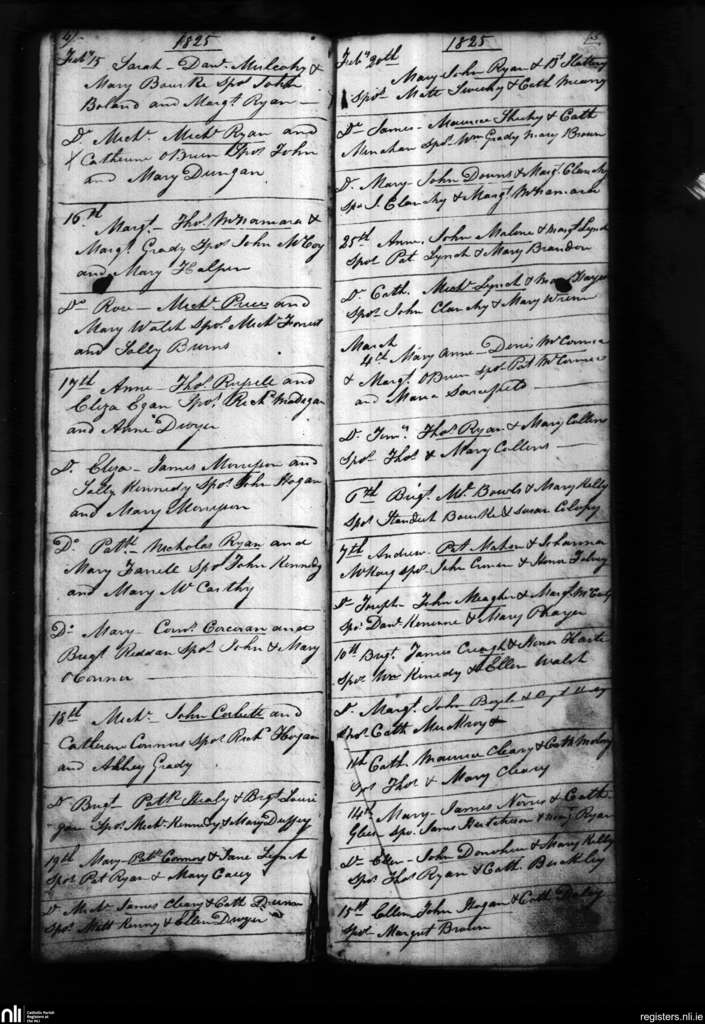 4)
1825
Feby 15 Sarah - Danl. Mulcahy &
Mary Bourke Spos John
Boland and Margt. Ryan
Do Michl. Michl. Ryan and
X Catherine OBrien Spos John
and Mary Dungan
16th
Margt. - Thos. McNamara &
Margt. Grady Spos John McCoy
and Mary Halpin
Do Rose - Michl. Prices and
Mary Walsh Spos. Michl. Forrest
and Sally Burns
17th Anne - Thos. Russell and
Eliza Egan Spos. Richd. Madigan
and Anne Dwyer
Do. Eliza - James Morrisson and
Sally Kennedy Spos John Hogan
and Mary Morrisson
Do Patk. Nicholas Ryan and
Mary Farrell Spos John Kennedy
and Mary McCarthy
Do Mary - Corns. Corcoran and
Brigt Reddan Spos. John & Mary
OConnor
18th Michl. John Corbett and
Catherine Connors Spos Richd. Hogan
and Abbey Grady
Do Brigt - Patk. Healy & Brigt
Spos. Michl. Kennedy & Mary Duffey
19th Mary - Patk. Connors & Jane Lynch
Spos Pat Ryan & Mary Casey
Do Michl. James Cleary & Cath
Spos. Matt Kenny & Ellen Dwyer
1825
5
Feby 20th
Mary John Ryan & Bt Slattery
Spos. Matt Sweeny & Cath
Do James - Maurice Sheehy & Cath
Spos. Wm Grady Mary Brown
Do. Mary - John Downs & Margt. Clanchy
Spos J. Clanchy & Margt. McNamara
25th Anne, John Malone & Margt Lynch
Spos Pat Lynch & Mary Brandon
Do. Cath. Michl. Lynch & Mary
Spos John Clanchy & Mary
March
4th Mary Anne - Denis McCormic
& Margt. OBrien spos Pat McCormic
and Maria
Do. Thos. Ryan & Mary Collins
Spos. Thos & Mary Collins
6th Brigt. Ml. Bowls & Mary Kelly
Spos Standish Bourke & Susan Colopy
7th Andrew. Pat Maher & Johanna
McKoey spos John & Honor
Do Joseph - John Meagher & Margt.
Spos Danl. & Mary Phayer
10th Brigt. James Creagh & Honor
Spos. Wm Kenedy & Ellen Walsh
Do. Margt. John Boyle &
Spos Cath
11th Cath. Maurice Cleary & Cath Molony
Spos Thos & Mary Cleary
14th Mary - James Norris & Cath
Spos. James Hutchison & Margt Ryan
Do Ellen - John Donohue & Mary Kelly
Spos Thos Ryan & Cath. Buckley
15th Ellen John Hogan & Cath Daley
Spos - Margret Brown
nli
Catholic Parish
Registers at
the NLI
registers.nli.ie